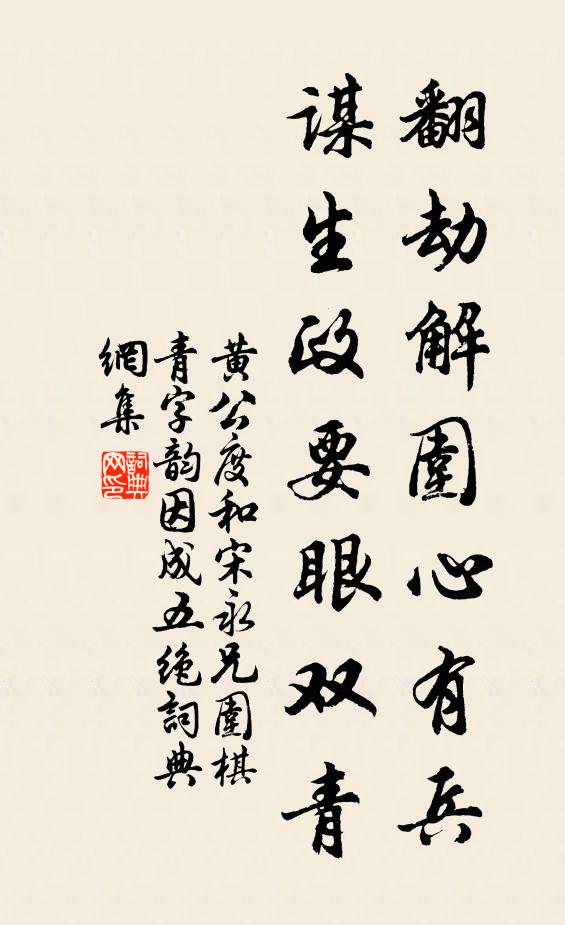 翻劫解圍心有兵
謀生政要眼双青
黄公度和宋永兄圍棋
青字韵因成五绝詞典
網集
詞典網印